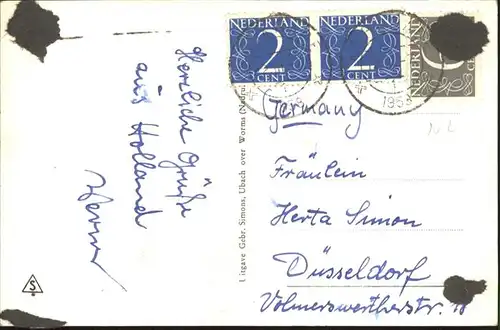 NEDERLAND
2
CENT
NEDERLAND
2
CENT
NEDERLAND
1953
Herzliche Grüße
aus Holland
Werner
Uitgave Gebr. Simons, Ubach over Worms
Germany
Fräulein
Herta Simon
Düsseldorf
Volmerswertherstr.
S